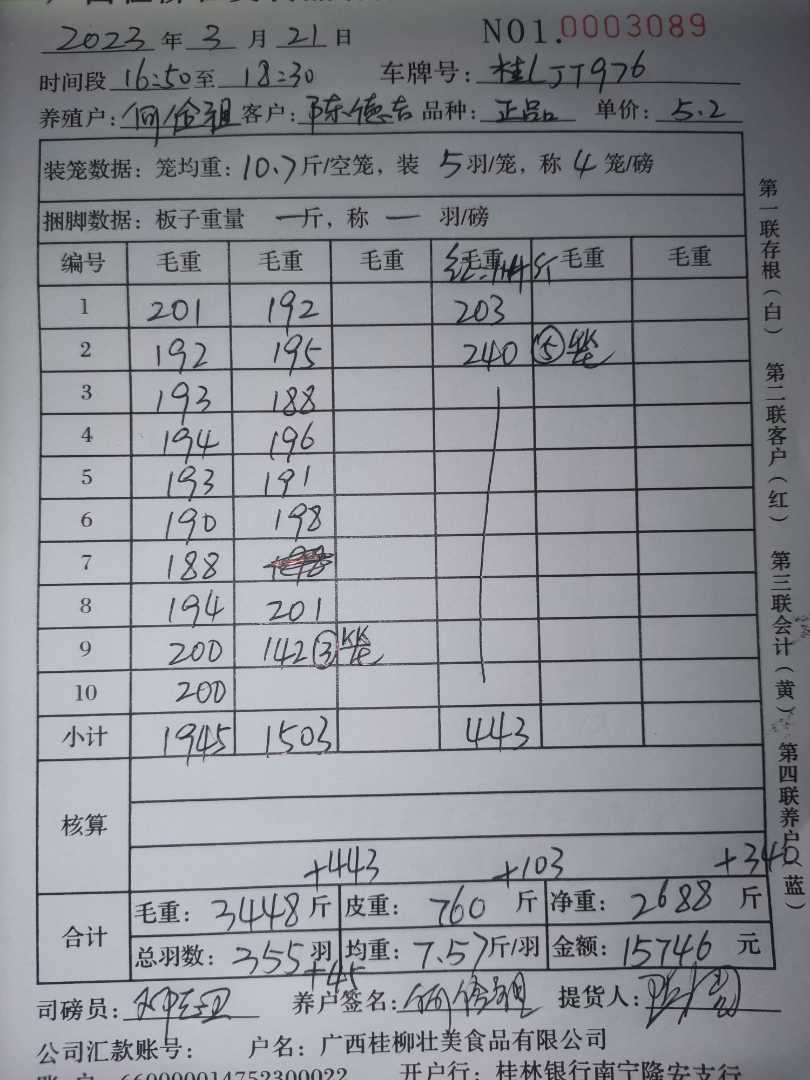 2023 年 3 月 21 日 NO1.0003089
时间段 16:50 至 18:30 车牌号: 桂LJT976
养殖户: 何俭祖 客户: 陈德吉 品种: 正品 单价: 5.2
装笼数据: 笼均重: 10.7 斤/空笼, 装 5 羽/笼, 称 4 笼/磅
捆脚数据: 板子重量 一 斤, 称 一 羽/磅
编号 毛重 毛重 毛重 毛重 毛重 毛重
1 201 192 203
2 192 195 240 ⑤笼
3 193 188
4 194 196
5 193 191
6 190 198
7 188
8 194 201
9 200 142 ③笼
10 200
小计 1945 1503 443
核算
+443 +103 +340
合计 毛重: 3448 斤 皮重: 760 斤 净重: 2688 斤
总羽数: 355 羽 均重: 7.57 斤/羽 金额: 15746 元
+45
司磅员: 养户签名: 何俭祖 提货人:
公司汇款账号: 户名: 广西桂柳壮美食品有限公司
660000014752300022 开户行: 桂林银行南宁隆安支行
第一联存根(白) 第二联客户(红) 第三联会计(黄) 第四联养户(蓝)